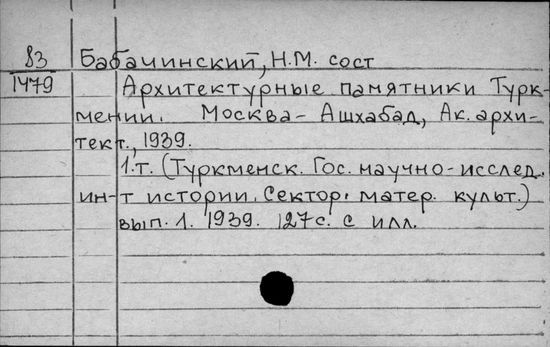 83
1479
Бабачинский, Н.М. сост
Архитектурные памятники Турк-
мении. Москва - Ашхабад, Ак. архи-
тект., 1939.
1.т. (Туркменск. Гос. научно-исслед.
ин-т истории. Сектор. матер. культ.)
вып. 1. 1939. 127с. с илл.